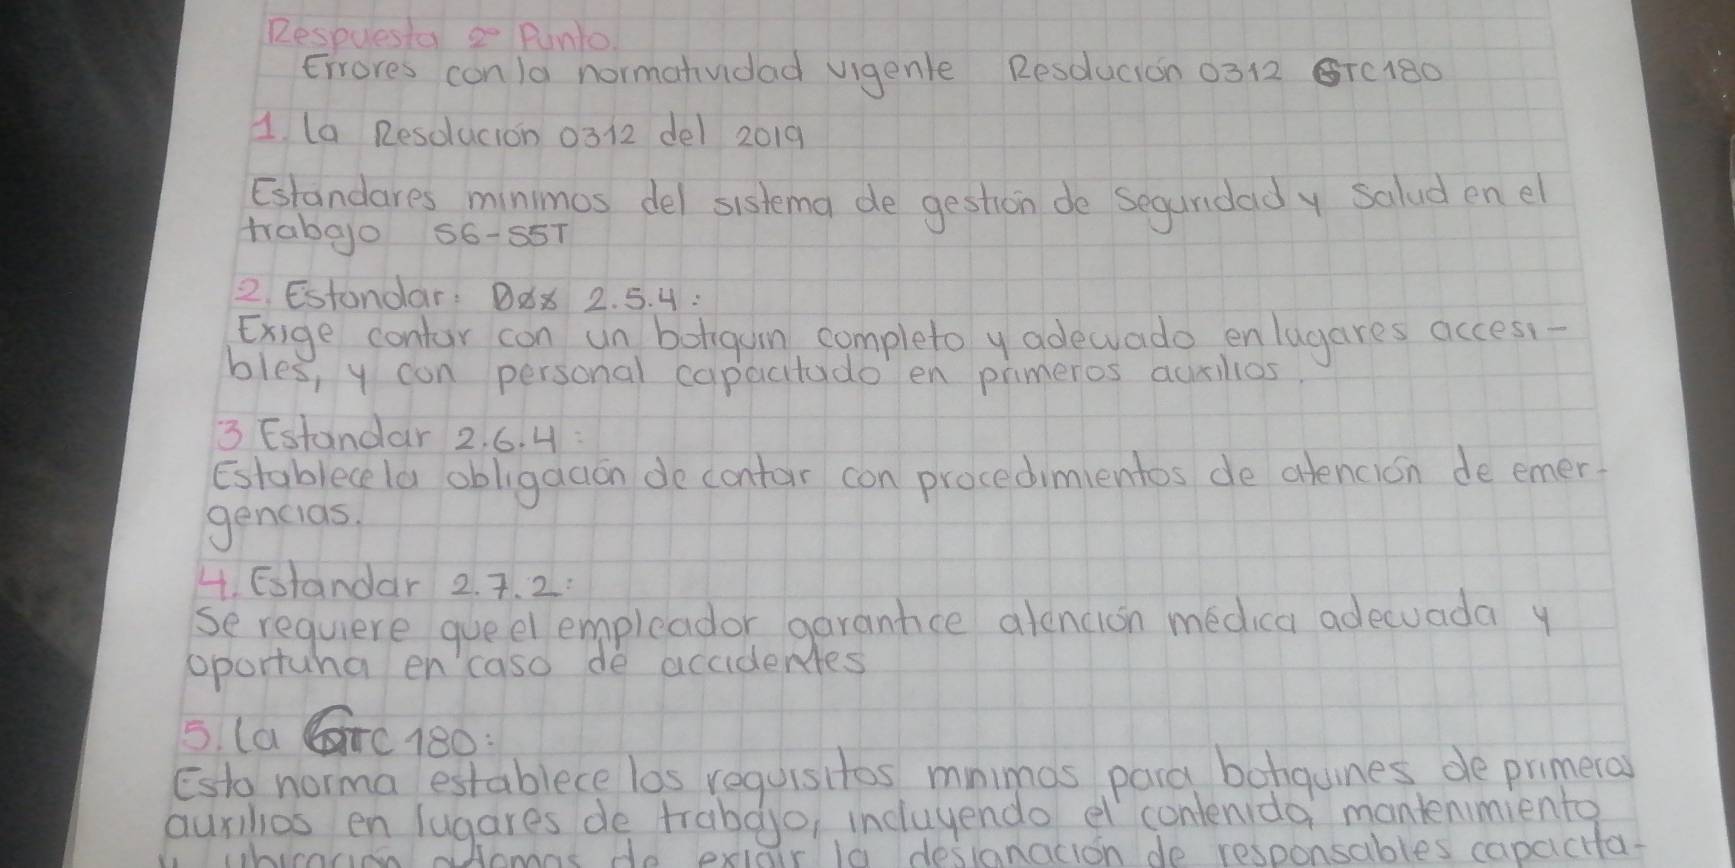 Respuesta 2° Punto.
Errores con la normatividad vigente Resolución 0312 GTC180
1. La Resolución 0312 del 2019
Estandares minimos del sistema de gestión de Seguridad y Salud en el
trabajo SG-SST
2. Estandar: 2.5.4:
Exige contar con un botiquin completo y adecuado en lugares accesi-
bles, y con personal capacitado en primeros auxilios.
3 Estandar 2.6.4:
Establece la obligación de contar con procedimientos de atención de emer-
gencias.
4. Estandar 2.7.2:
Se requiere que el empleador garantice atención médica adecuada y
oportuna en caso de accidentes
5. La GTC 180:
Esta norma establece los requisitos minimos para botiquines de primeros
auxilios en lugares de trabajo, incluyendo el contenido, mantenimiento
y ubicación ademas de exigir la designación de responsables capacita-